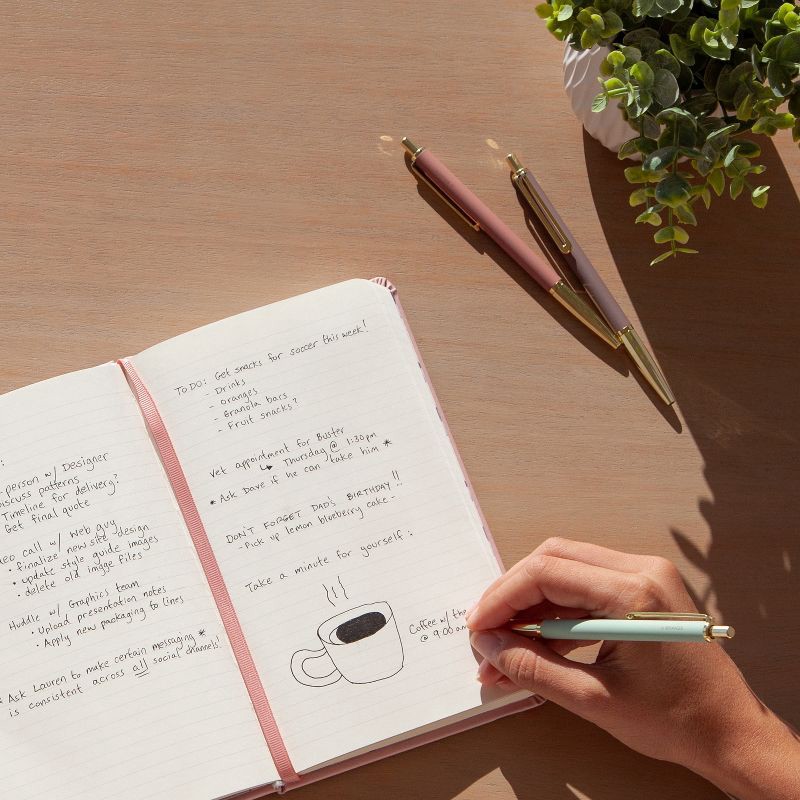 :
-person w/ Designer
iscuss patterns
Timeline for delivery?
Get final quote
eo call w/ web guy
• finalize new site design
• update style guide images
• delete old image files
Huddle w/ Graphics team
• Upload presentation notes
• Apply new packaging to lines
Ask Lauren to make certain messaging *
is consistent across all social channels!
TO DO: Get snacks for soccer this week!
- Drinks
- oranges
- Granola bars
- Fruit snacks?
Vet appointment for Buster
Thursday @ 1:30pm
* Ask Dave if he can take him *
DON'T FORGET DAD'S BIRTHDAY!!
- Pick up lemon blueberry cake -
Take a minute for yourself:
Coffee w/ the
@ 9:00 am